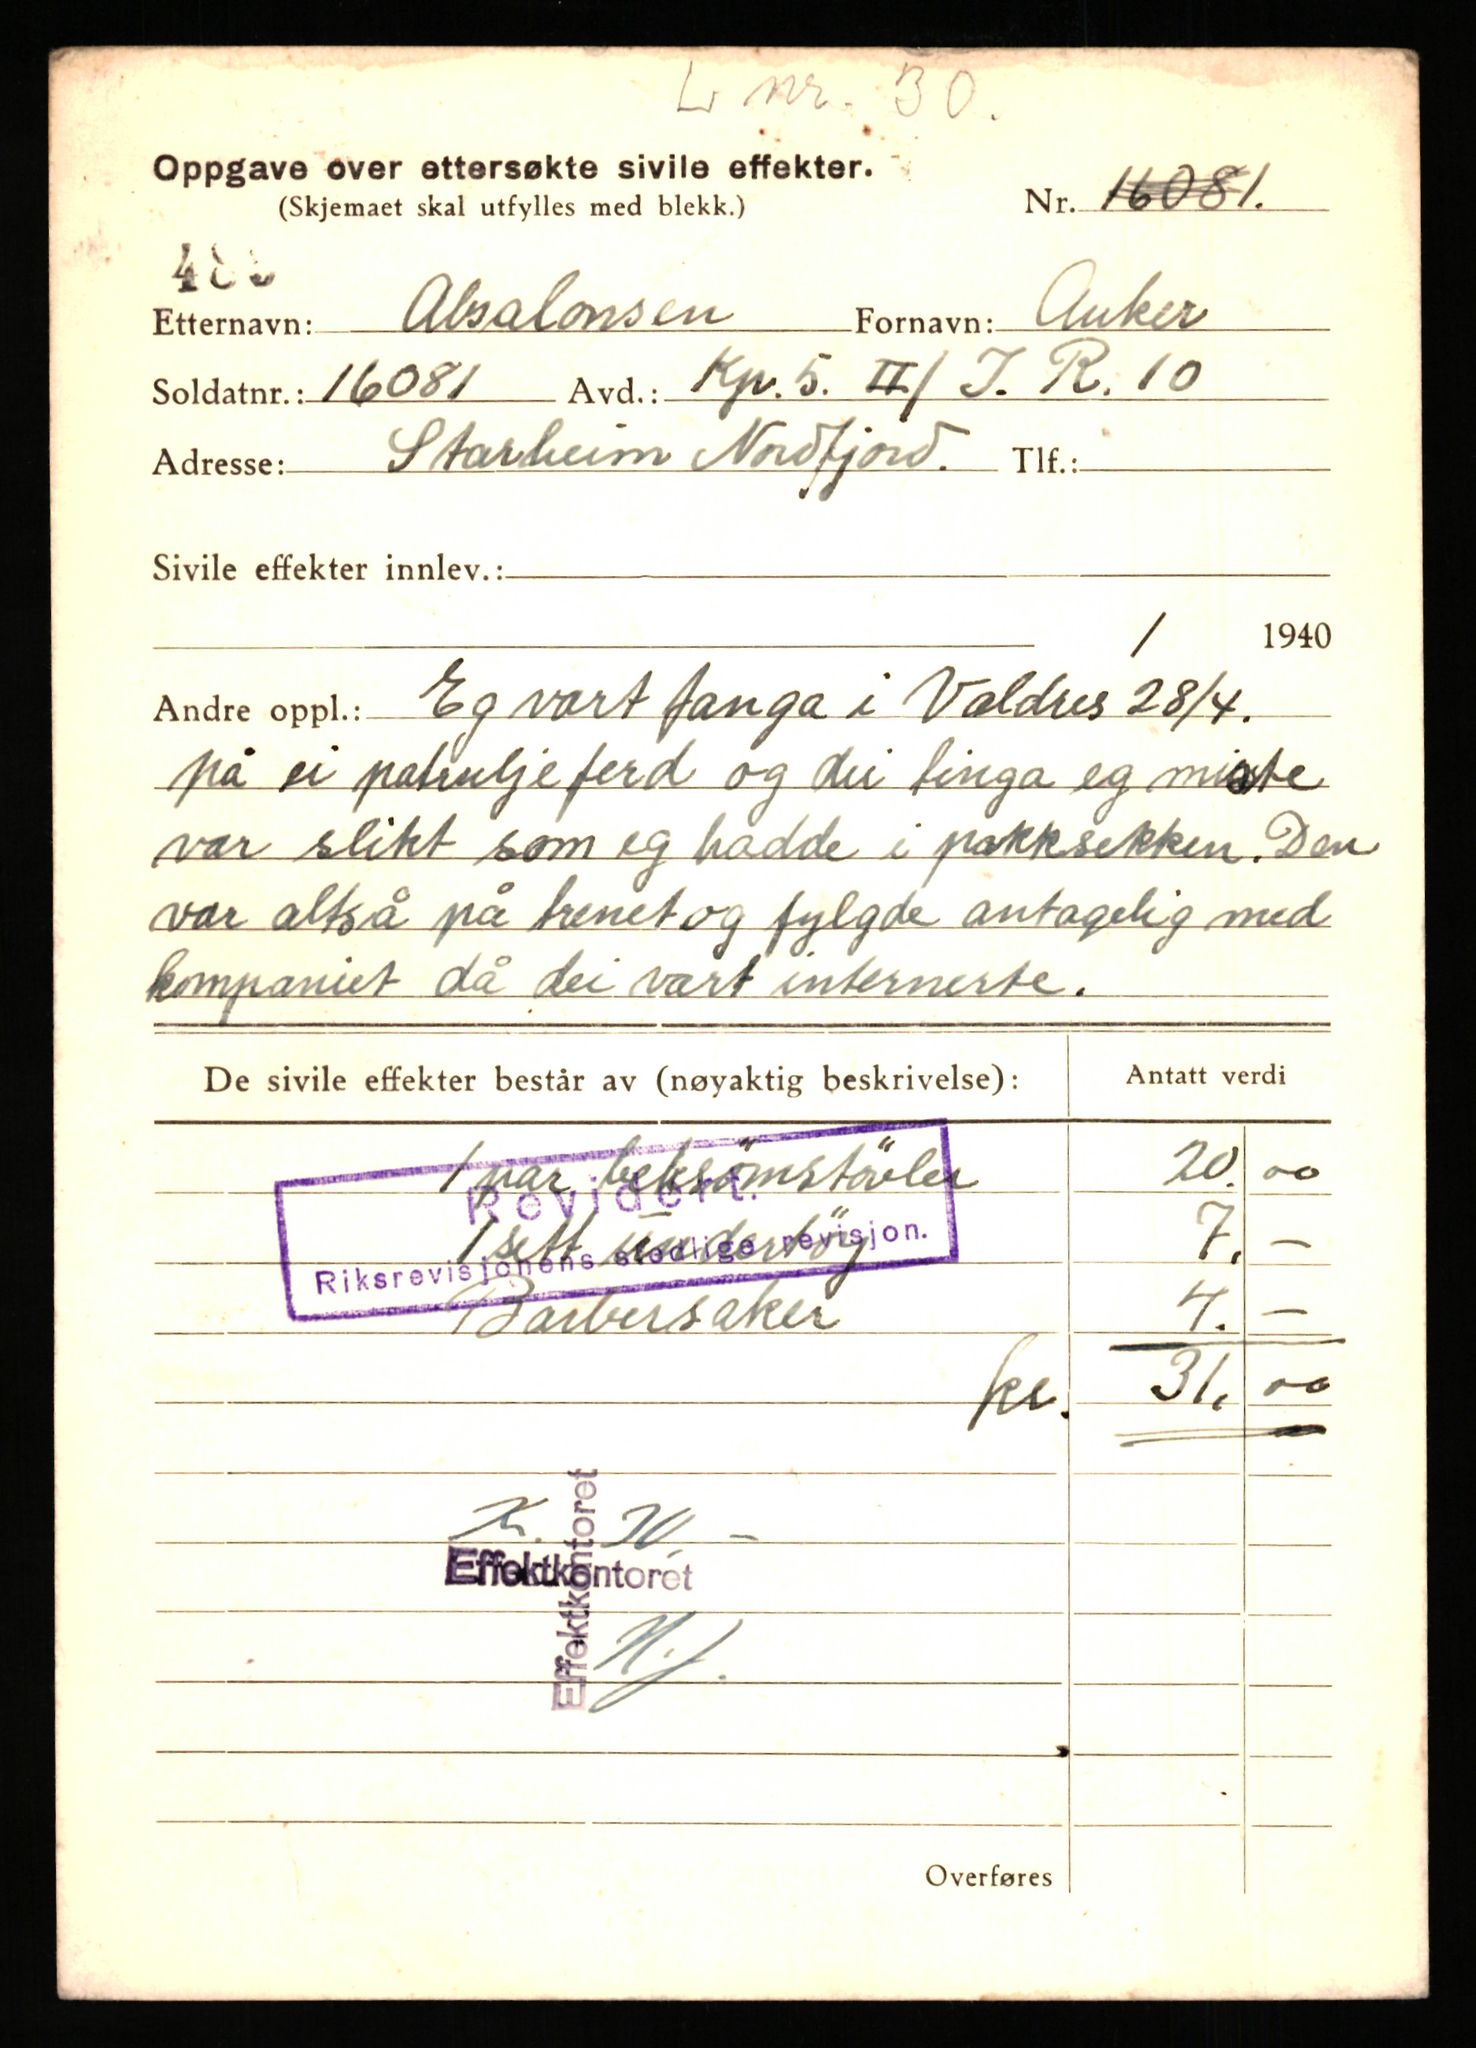 L nr. 30.
Oppgave over ettersøkte sivile effekter.
(Skjemaet skal utfylles med blekk.)
Nr. 16081.
Etternavn: Absalonsen Fornavn: Anker
Soldatnr.: 16081 Avd.: Kp. 5. II/ I. R. 10
Adresse: Starheim Nordfjord. Tlf.:
Sivile effekter innlev.:
/ 1940
Andre oppl.: Eg vart fanga i Valdres 28/4.
på ei patruljeferd og dei tinga eg miste
var slikt som eg hadde i pakksekken. Den
var altså på trenet og fylgde antagelig med
kompaniet då dei vart internerte.
De sivile effekter består av (nøyaktig beskrivelse): Antatt verdi
1 par beksömstövler 20. 00
Revidert.
1 sett undertöy 7. –
Riksrevisjonens stedlige revisjon.
Barbersaker 4. –
kr. 31. 00
Effektkontoret
Effektkontoret
Overføres